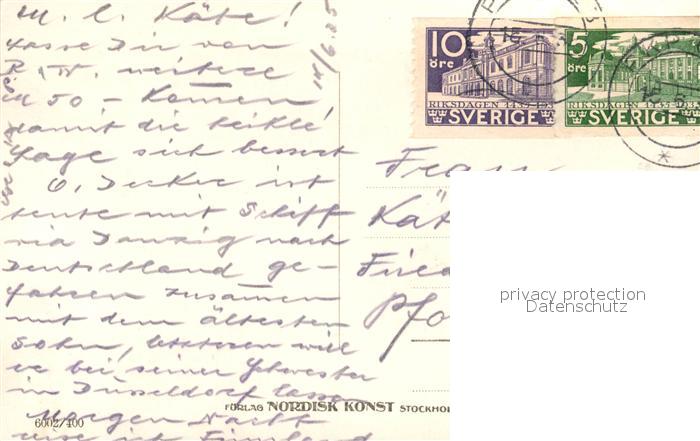 M. l. Käte!
lasse Dir von
B. W. weitere
M 50 – kommen,
damit die heikle
Lage sich bessert
O. Decker ist
heute mit Schiff
via Danzig nach
Deutschland ge-
fahren zusammen
mit dem ältesten
Sohn, letzteren will
er bei seiner Schwester
in Düsseldorf lassen
Morgen Nacht
reise ich Finnland
10 öre
RIKSDAGEN 1435-1935
SVERIGE
5 öre
RIKSDAGEN 1435-1935
SVERIGE
Frau
Kät
Frie
Pfo
privacy protection
Datenschutz
FÖRLAG NORDISK KONST STOCKHOL
6002/400